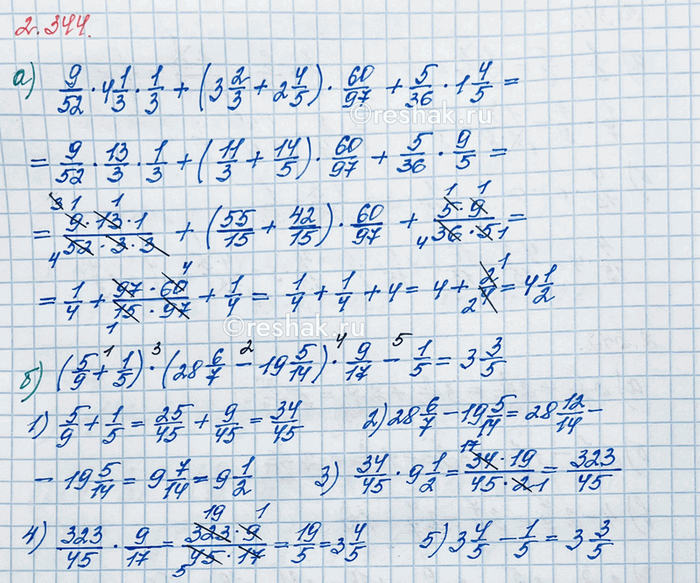 2.344.
а) 9/52 · 4 1/3 · 1/3 + (3 2/3 + 2 4/5) · 60/97 + 5/36 · 1 4/5 =
= 9/52 · 13/3 · 1/3 + (11/3 + 14/5) · 60/97 + 5/36 · 9/5 =
= 9·13·1/52·3·3 + (55/15 + 42/15) · 60/97 + 5·9/36·5 =
= 1/4 + 97·60/15·97 + 1/4 = 1/4 + 1/4 + 4 = 4 + 2/4 = 4 1/2
б) (5/9 + 1/5) · (28 6/7 - 19 5/14) · 9/17 - 1/5 = 3 3/5
1) 5/9 + 1/5 = 25/45 + 9/45 = 34/45 2) 28 6/7 - 19 5/14 = 28 12/14 -
- 19 5/14 = 9 7/14 = 9 1/2 3) 34/45 · 9 1/2 = 34·19/45·2 = 323/45
4) 323/45 · 9/17 = 323·9/45·17 = 19/5 = 3 4/5 5) 3 4/5 - 1/5 = 3 3/5
©reshak.ru
©reshak.ru